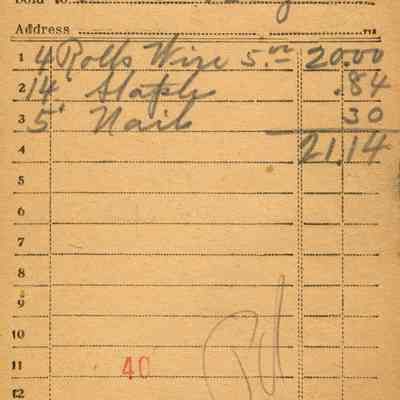 Sold to
Address
1 4 Rolls Wire 5.00 20.00
2 14 Staple .84
3 5 Nails 30
4 21.14
5
6
7
8
9
10
11 40
12
Pd